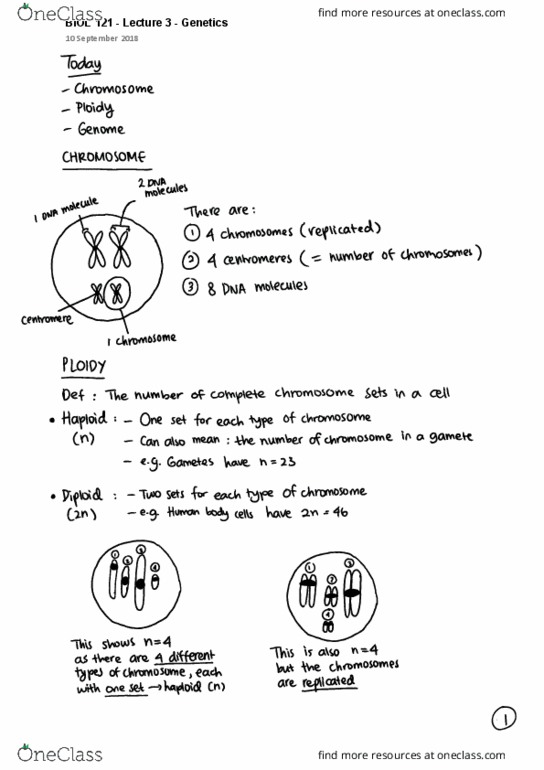 OneClass
find more resources at oneclass.com
BIOL 121 - Lecture 3 - Genetics
10 September 2018
Today
- Chromosome
- Ploidy
- Genome
CHROMOSOME
1 DNA molecule
2 DNA molecules
There are :
① 4 chromosomes (replicated)
② 4 centromeres ( = number of chromosomes )
③ 8 DNA molecules
Centromere
1 chromosome
PLOIDY
Def : The number of complete chromosome sets in a cell
• Haploid : - One set for each type of chromosome
(n) - Can also mean : the number of chromosome in a gamete
- e.g. Gametes have n = 23
• Diploid : - Two sets for each type of chromosome
(2n) - e.g. Human body cells have 2n = 46
① ② ③ ④
① ② ③ ④
This shows n=4
as there are 4 different
types of chromosome, each
with one set → haploid (n)
This is also n=4
but the chromosomes
are replicated
①
OneClass
find more resources at oneclass.com